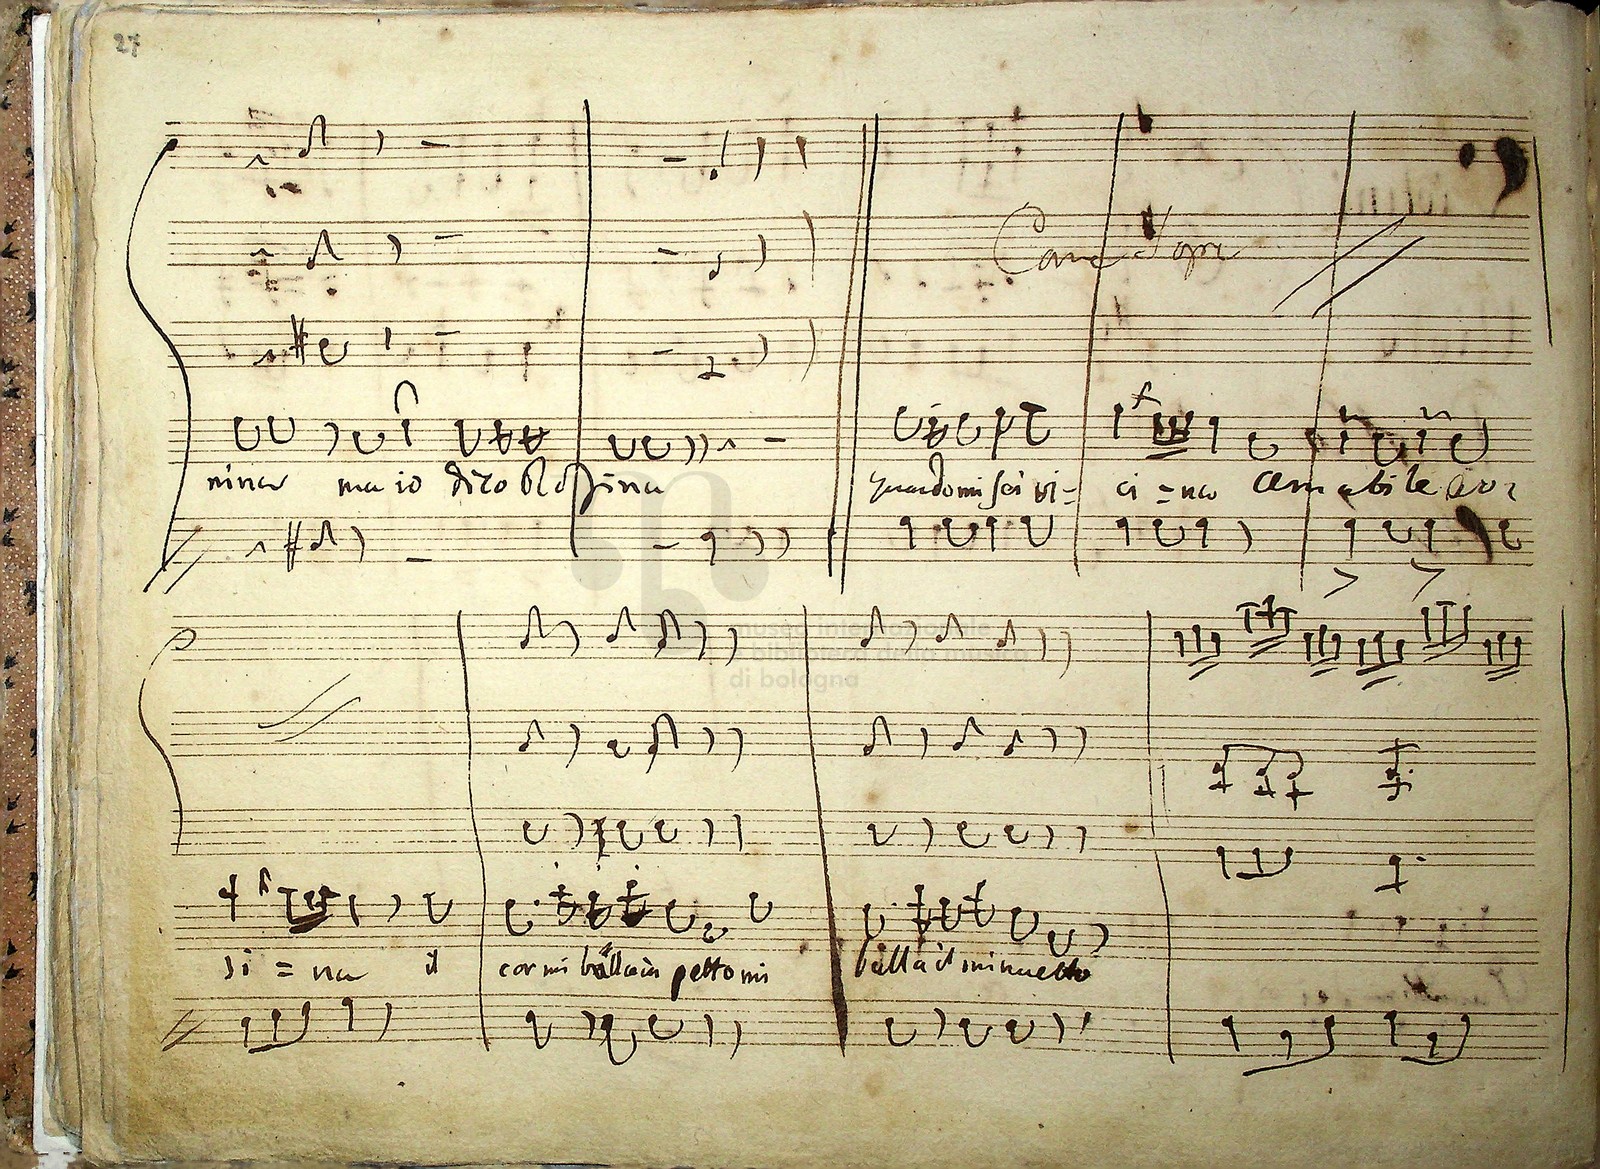 27
Come Sopra
nina ma io dico
quando mi sei vi=
ci = na amabile
museo internazionale
e biblioteca della musica
di bologna
si = na il cor mi balla in petto mi balla il minuetto